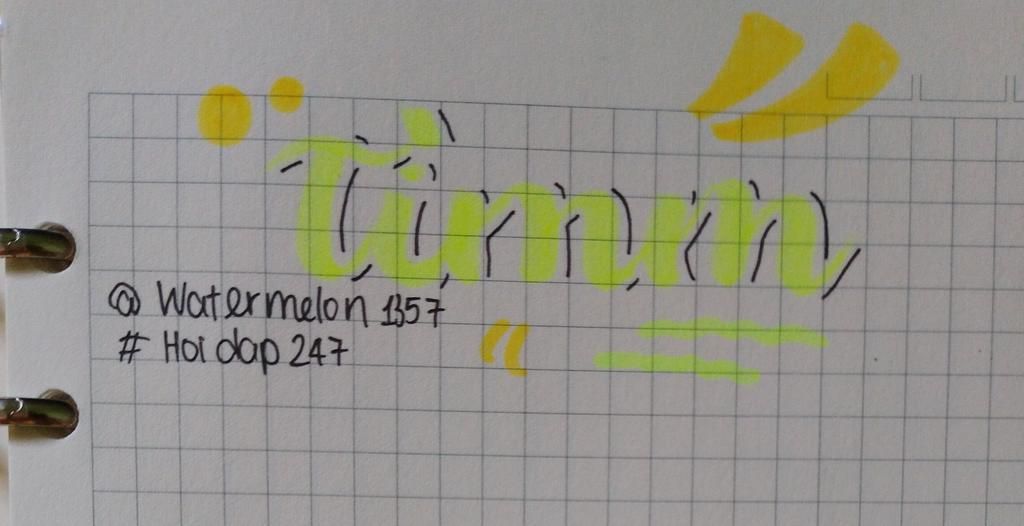 Timm
@ Watermelon 1357
# Hoi dap 247